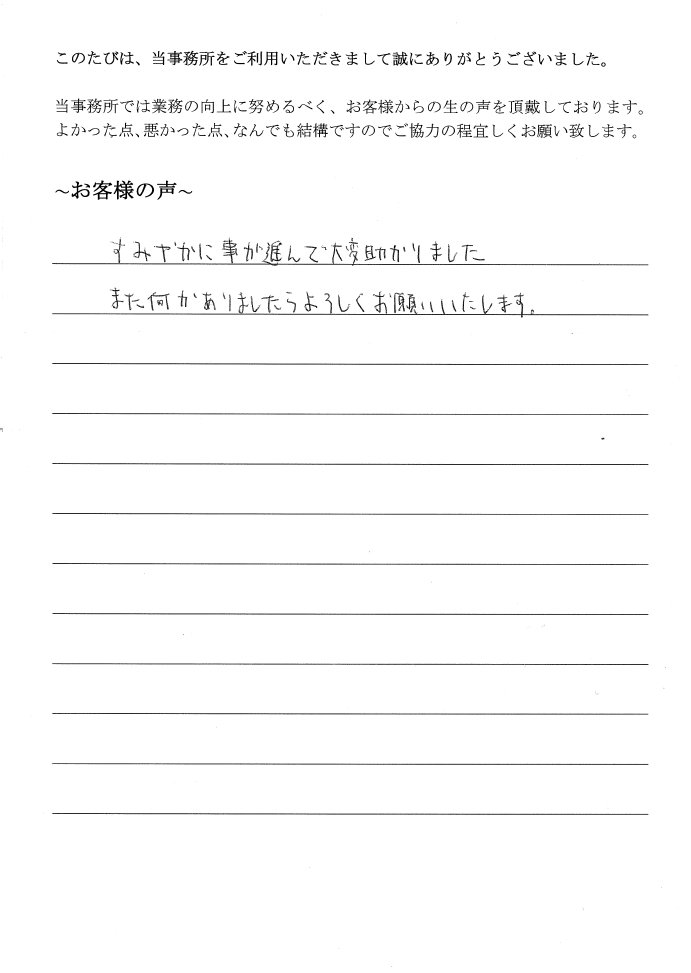 このたびは、当事務所をご利用いただきまして誠にありがとうございました。
当事務所では業務の向上に努めるべく、お客様からの生の声を頂戴しております。
よかった点、悪かった点、なんでも結構ですのでご協力の程宜しくお願い致します。
~お客様の声~
すみやかに事が進んで大変助かりました
また何かありましたらよろしくお願いいたします。